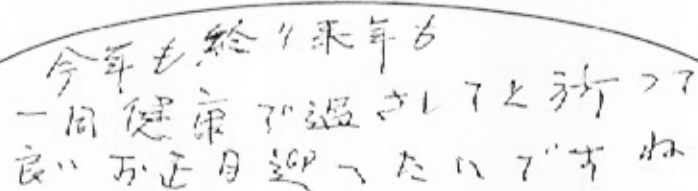 今年も終り来年も
一同健康で過さしてと祈って
良いお正月迎へたいですね